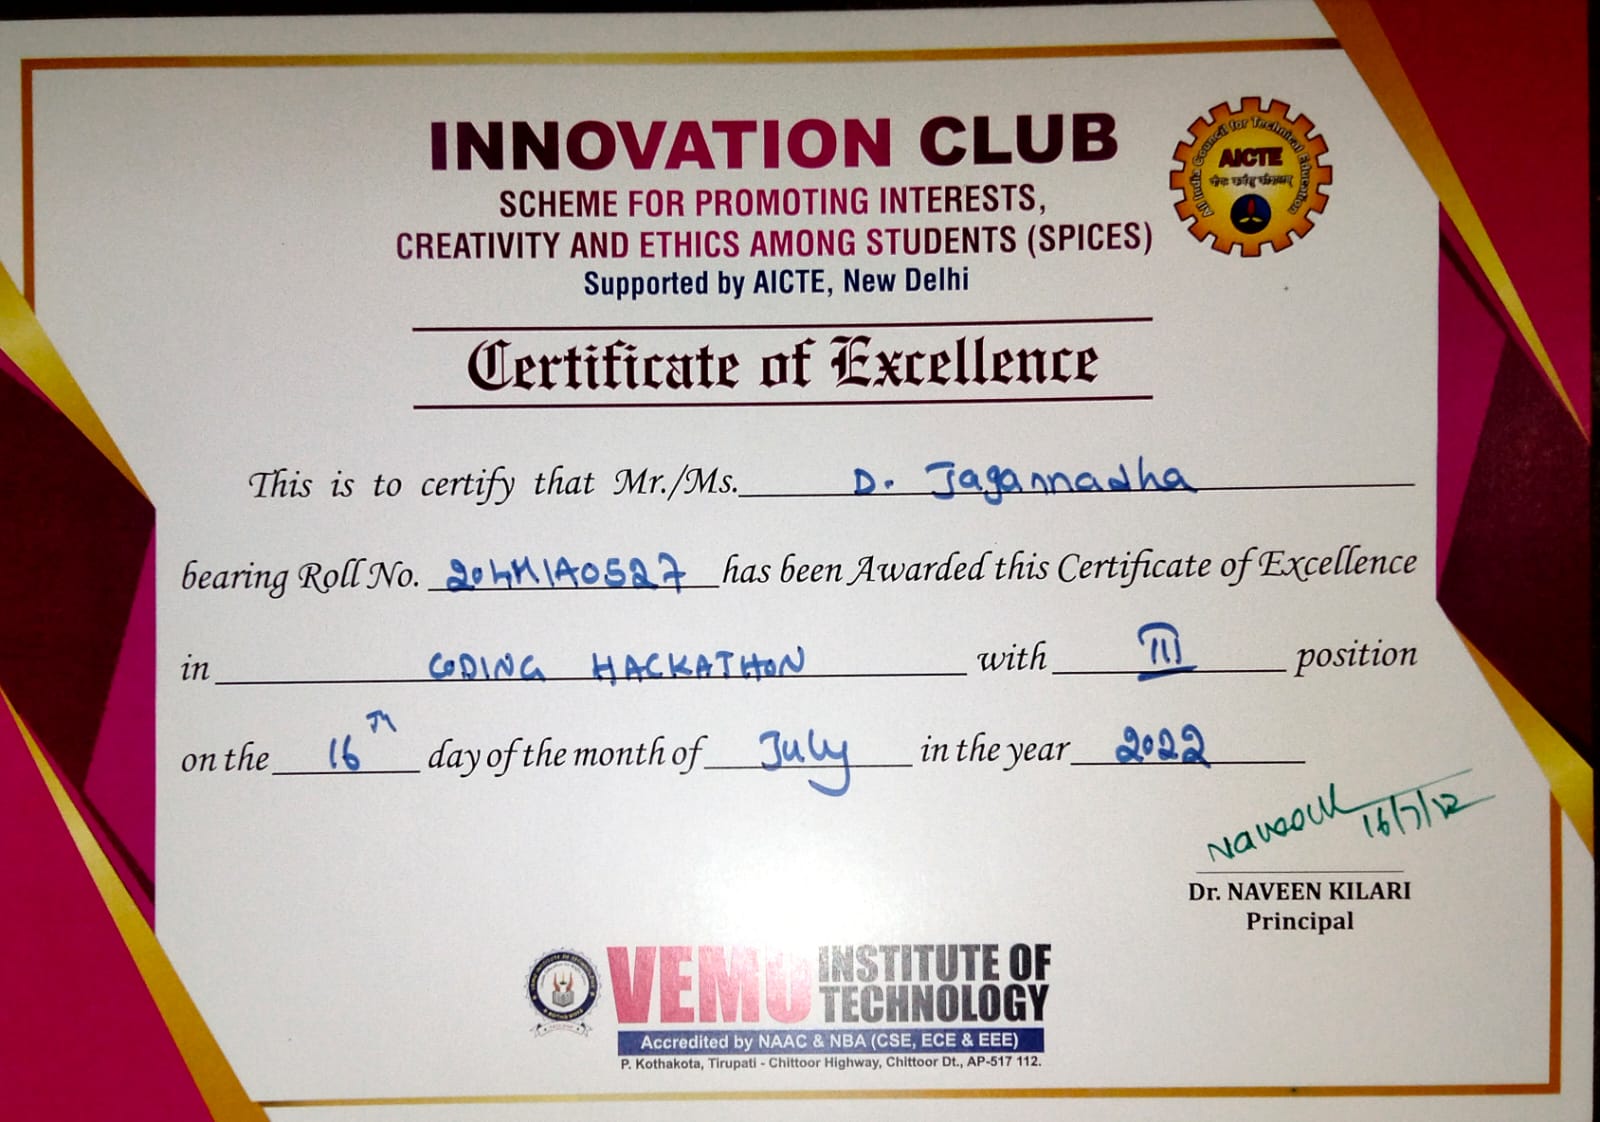 INNOVATION CLUB
SCHEME FOR PROMOTING INTERESTS,
CREATIVITY AND ETHICS AMONG STUDENTS (SPICES)
Supported by AICTE, New Delhi
All India Council for Technical Education
AICTE
Certificate of Excellence
This is to certify that Mr./Ms. D. Jagannadha
bearing Roll No. 204M1A0527 has been Awarded this Certificate of Excellence
in CODING HACKATHON with III position
on the 16TH day of the month of July in the year 2022
Naveen K 16/7/22
Dr. NAVEEN KILARI
Principal
VEMU INSTITUTE OF
TECHNOLOGY
Accredited by NAAC & NBA (CSE, ECE & EEE)
P. Kothakota, Tirupati - Chittoor Highway, Chittoor Dt., AP-517 112.